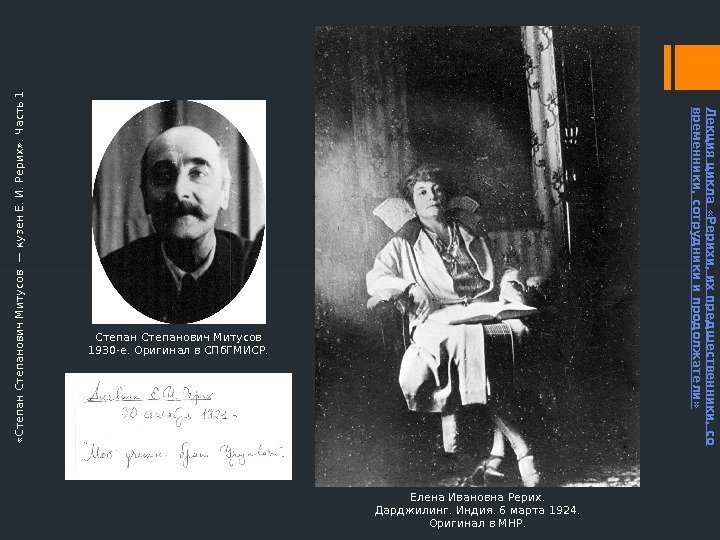 «Степан Степанович Митусов — кузен Е. И. Рерих». Часть 1
Степан Степанович Митусов
1930-е. Оригинал в СПбГМИСР.
Е. И. Рерих
30 сентября 1921 г.
"Мой
брат
Елена Ивановна Рерих.
Дарджилинг. Индия. 6 марта 1924.
Оригинал в МНР.
Лекция цикла «Рерихи, их предшественники, со
временники, сотрудники и продолжатели»